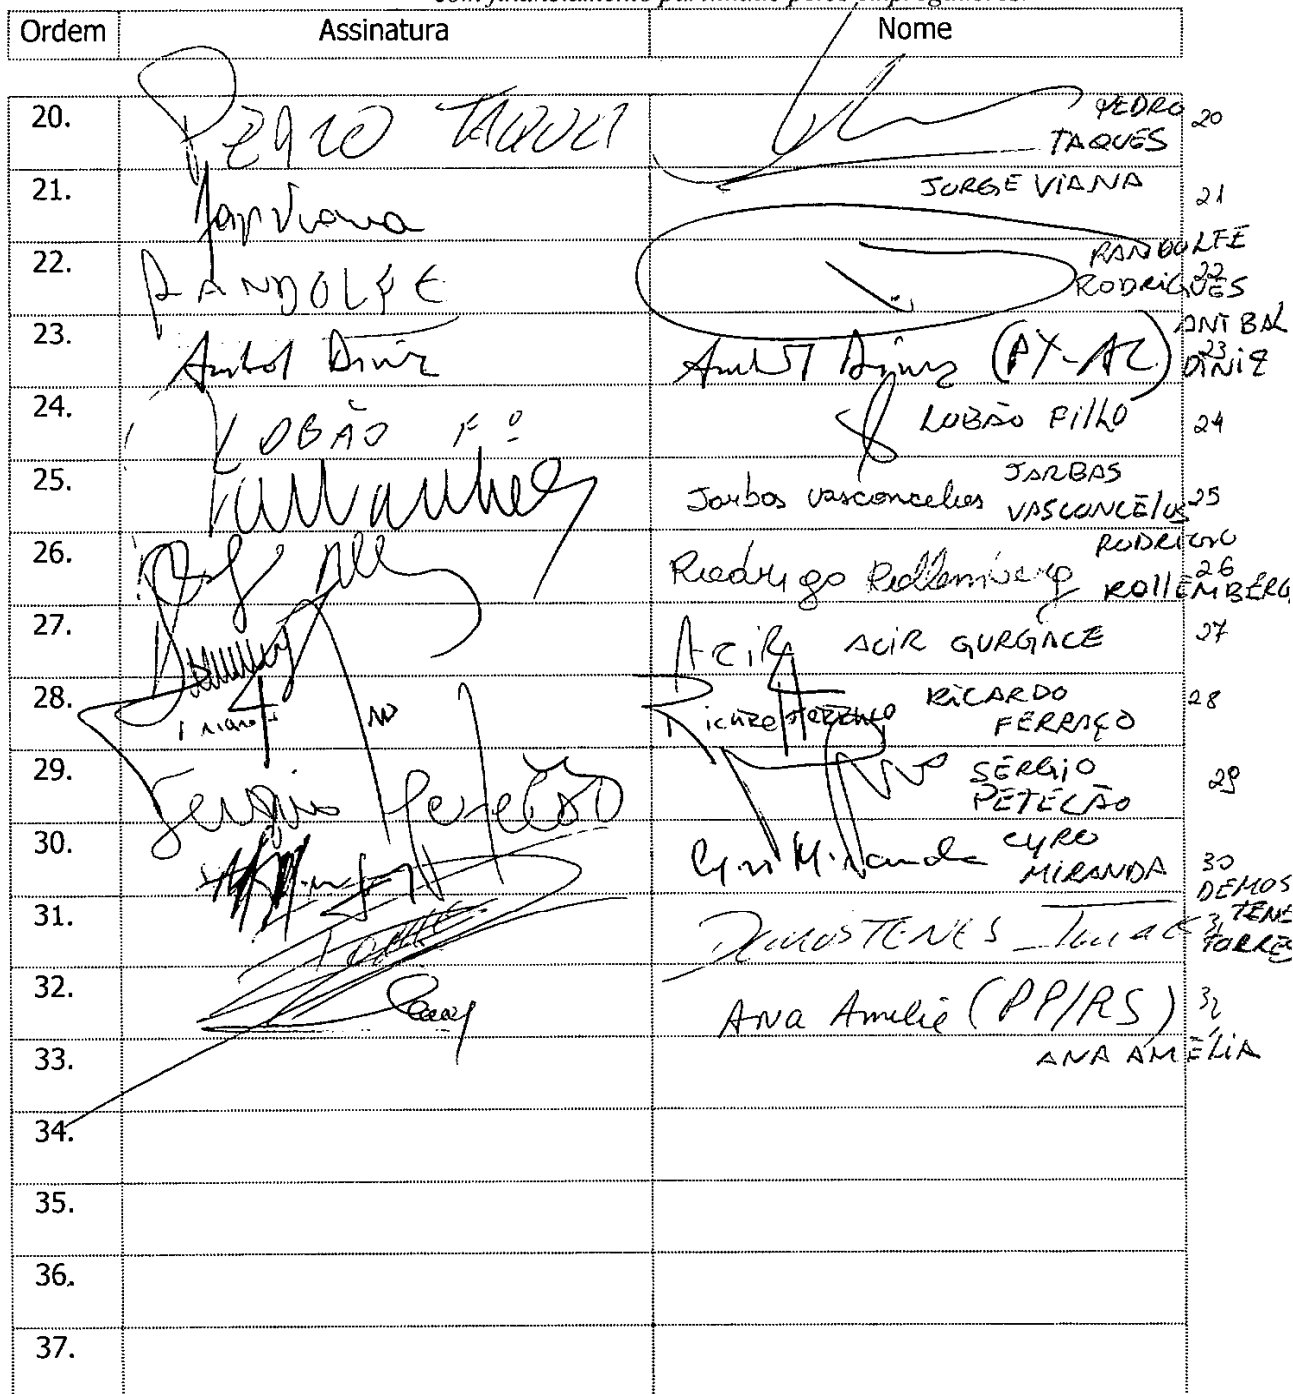 com financiamento partilhado pelos empregadores.
Ordem Assinatura Nome
20. PEDRO TAQUES PEDRO 20
TAQUES
21. Jorge Viana JORGE VIANA 21
22. RANDOLFE RANDOLFE
RODRIGUES 22
23. Anibal Diniz Anibal Diniz (PT-AC) ANIBAL
DINIZ 23
24. LOBÃO Fº LOBÃO FILHO 24
25. Jarbas Vasconcelos JARBAS
VASCONCELOS 25
26. Rodrigo Rollemberg RODRIGO
ROLLEMBERG 26
27. ACIR ACIR GURGACZ 27
28. Ricardo Ferraço RICARDO
FERRAÇO 28
29. Sergio Petecão SÉRGIO
PETECÃO 29
30. Cyro Miranda CYRO
MIRANDA 30
31. DEMOSTENES DEMOS
TENES
TORRES 31
32. Ana Amelia (PP/RS) 32
ANA AMÉLIA
33.
34.
35.
36.
37.